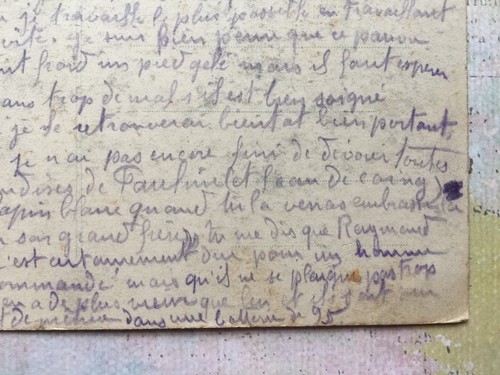 je travaille le plus possible en travaillant
vite. je suis bien peiné que ce pauvre
froid un pied gelé mais il faut espérer
sans trop de mal s'il est bien soigné
je le retrouverai bientot bien portant,
je n'ai pas encore fini de dévorer toutes
de Pauline et Jean de
lapin blanc quand tu la verras embrasse la
son grand frère, tu me dis que Raymond
c'est certainement dur pour un homme
commandé mais qu'il ne se plaigne pas trop
en a de plus que lui et
de même dans une batterie de 95.